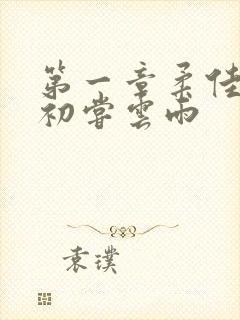 第一章柔佳
初嘗雲雨
袁璞